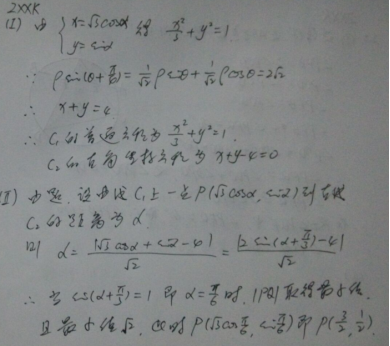 ZXXK
(I) 由 { x=√3cosα 得 x²/3+y²=1
y=sinα
∵ ρsin(θ+π/4)=1/√2 ρsinθ+1/√2 ρcosθ=2√2
∴ x+y=4
∴ C₁的普通方程为 x²/3+y²=1.
C₂的直角坐标方程为 x+y-4=0
(II) 由题,设曲线C₁上一点P(√3cosα, sinα)到直线
C₂的距离为d.
则 d=|√3cosα+sinα-4|/√2=|2sin(α+π/3)-4|/√2
∴ 当 sin(α+π/3)=1 即 α=π/6时, |PQ|取得最小值,
且最小值√2, 此时P(√3cosπ/6, sinπ/6)即P(3/2, 1/2).